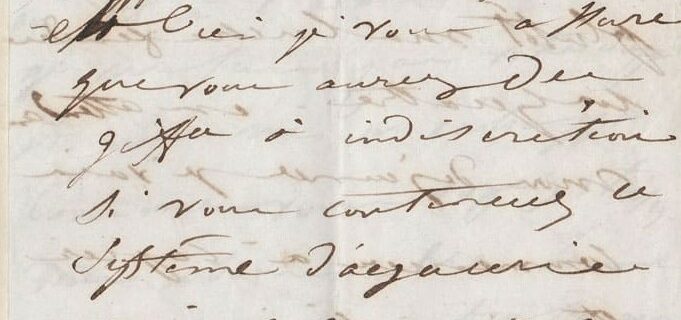 eh bien je vous assure
que vous aurez des
giffles à indiscrétion
si vous continuez ce
Système d'agacerie